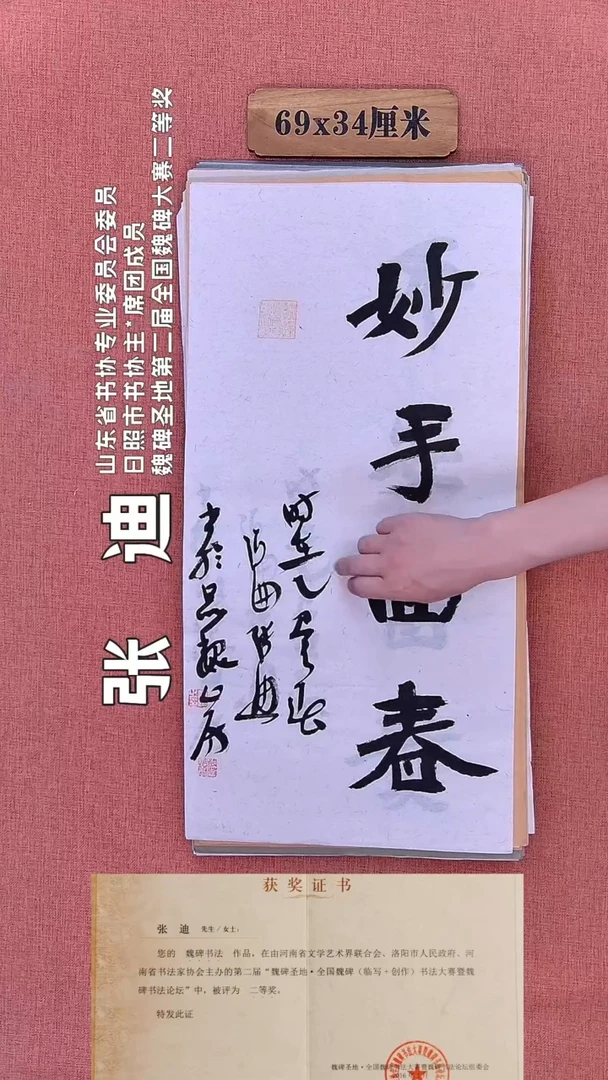 69x34厘米
妙手回春
时在乙
山东省书协专业委员会委员
日照市书协主*席团成员
魏碑圣地第二届全国魏碑大赛二等奖
张迪
获奖证书
张 迪 先生/女士:
您的 魏碑书法 作品,在由河南省文学艺术界联合会、洛阳市人民政府、河
南省书法家协会主办的第二届“魏碑圣地·全国魏碑(临写+创作)书法大赛暨魏
碑书法论坛”中,被评为 二等奖。
特发此证
魏碑圣地·全国魏碑书法大赛暨魏碑书法论坛组委会